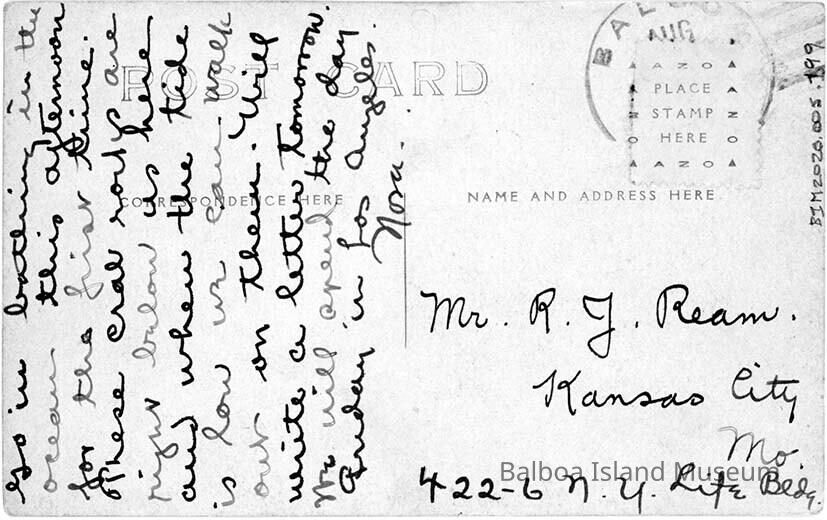 POST CARD
CORRESPONDENCE HERE
NAME AND ADDRESS HERE
BAL
AUG
AZO
PLACE
STAMP
HERE
AZO
Go in bathing in the
ocean this afternoon
for the first time.
These crab rocks are
right below us here
and when the tide
is low we can walk
out on them. Will
write a letter tomorrow.
We will spend the day
Friday in Los Angeles.
Nora.
Mr. R. J. Ream.
Kansas City
Mo.
422-6 N. Y. Life Bldg.
Balboa Island Museum
BIM2020.005.199